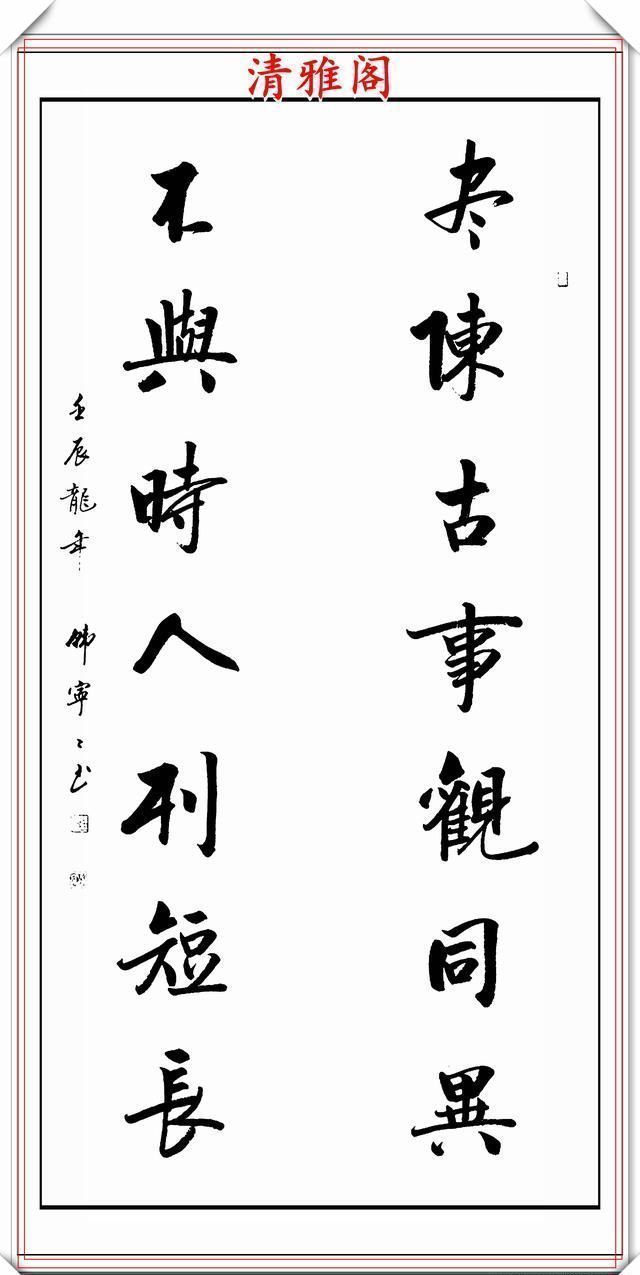 清雅阁
尽陳古事觀同異
不與時人列短長
壬辰龍年 韩寧寧書